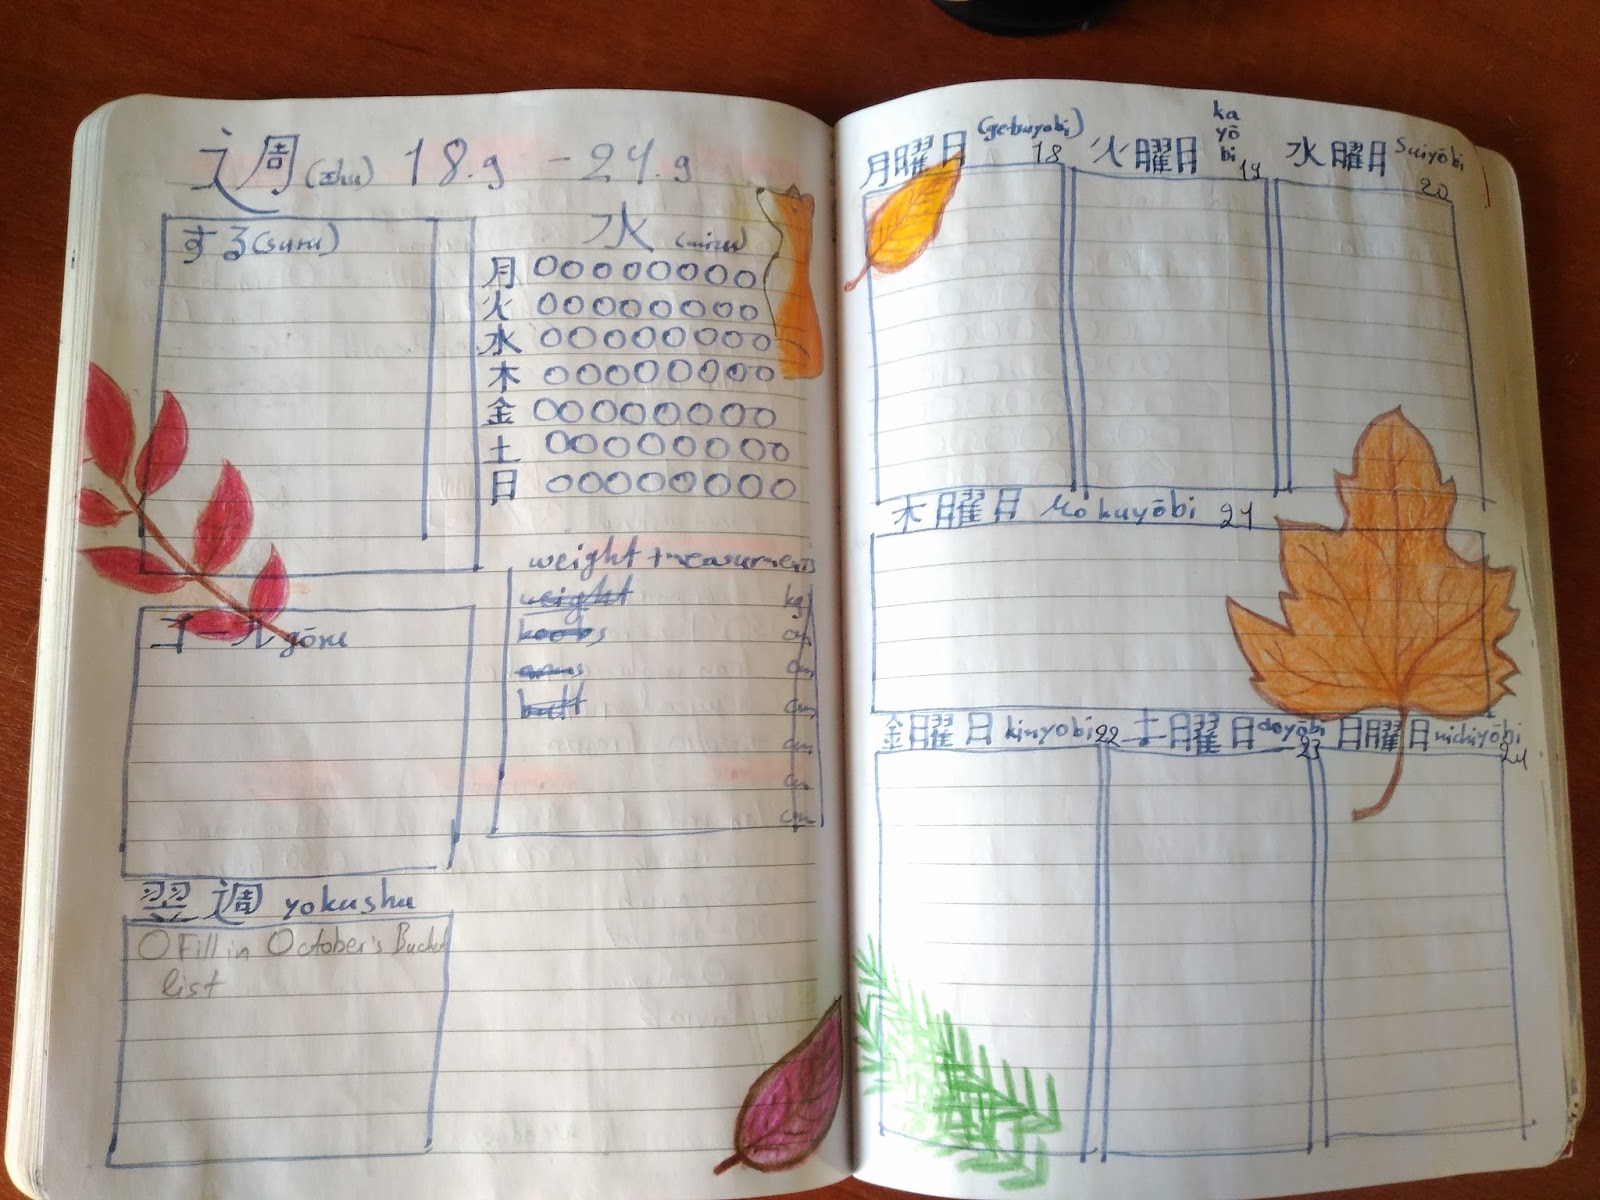 週 (shu) 18.9 - 24.9
する (suru)
水 (mizu)
月
火
水
木
金
土
日
weight + measurements
weight kg
cm
arms cm
butt cm
cm
cm
cm
ゴール gōru
翌週 yokushu
Fill in October's Bucket
list
月曜日 (getsuyobi) 18
火曜日 kayōbi 19
水曜日 Suiyōbi 20
木曜日 Mokuyōbi 21
金曜日 kinyobi 22
土曜日 doyōbi 23
日曜日 nichiyōbi 24